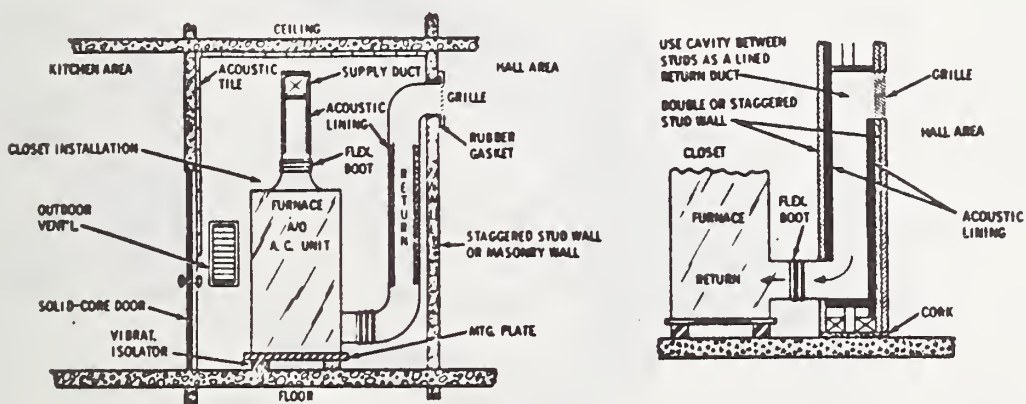 CEILING
KITCHEN AREA
ACOUSTIC
TILE
SUPPLY DUCT
HALL AREA
ACOUSTIC
LINING
GRILLE
RUBBER
GASKET
CLOSET INSTALLATION
FLEX.
BOOT
RETURN
FURNACE
A/O
A.C. UNIT
OUTDOOR
VENT'L
STAGGERED STUD WALL
OR MASONRY WALL
SOLID-CORE DOOR
VIBRAT.
ISOLATOR
MTG. PLATE
FLOOR
USE CAVITY BETWEEN
STUDS AS A LINED
RETURN DUCT
GRILLE
DOUBLE OR STAGGERED
STUD WALL
HALL AREA
CLOSET
FURNACE
FLEX.
BOOT
ACOUSTIC
LINING
RETURN
CORK